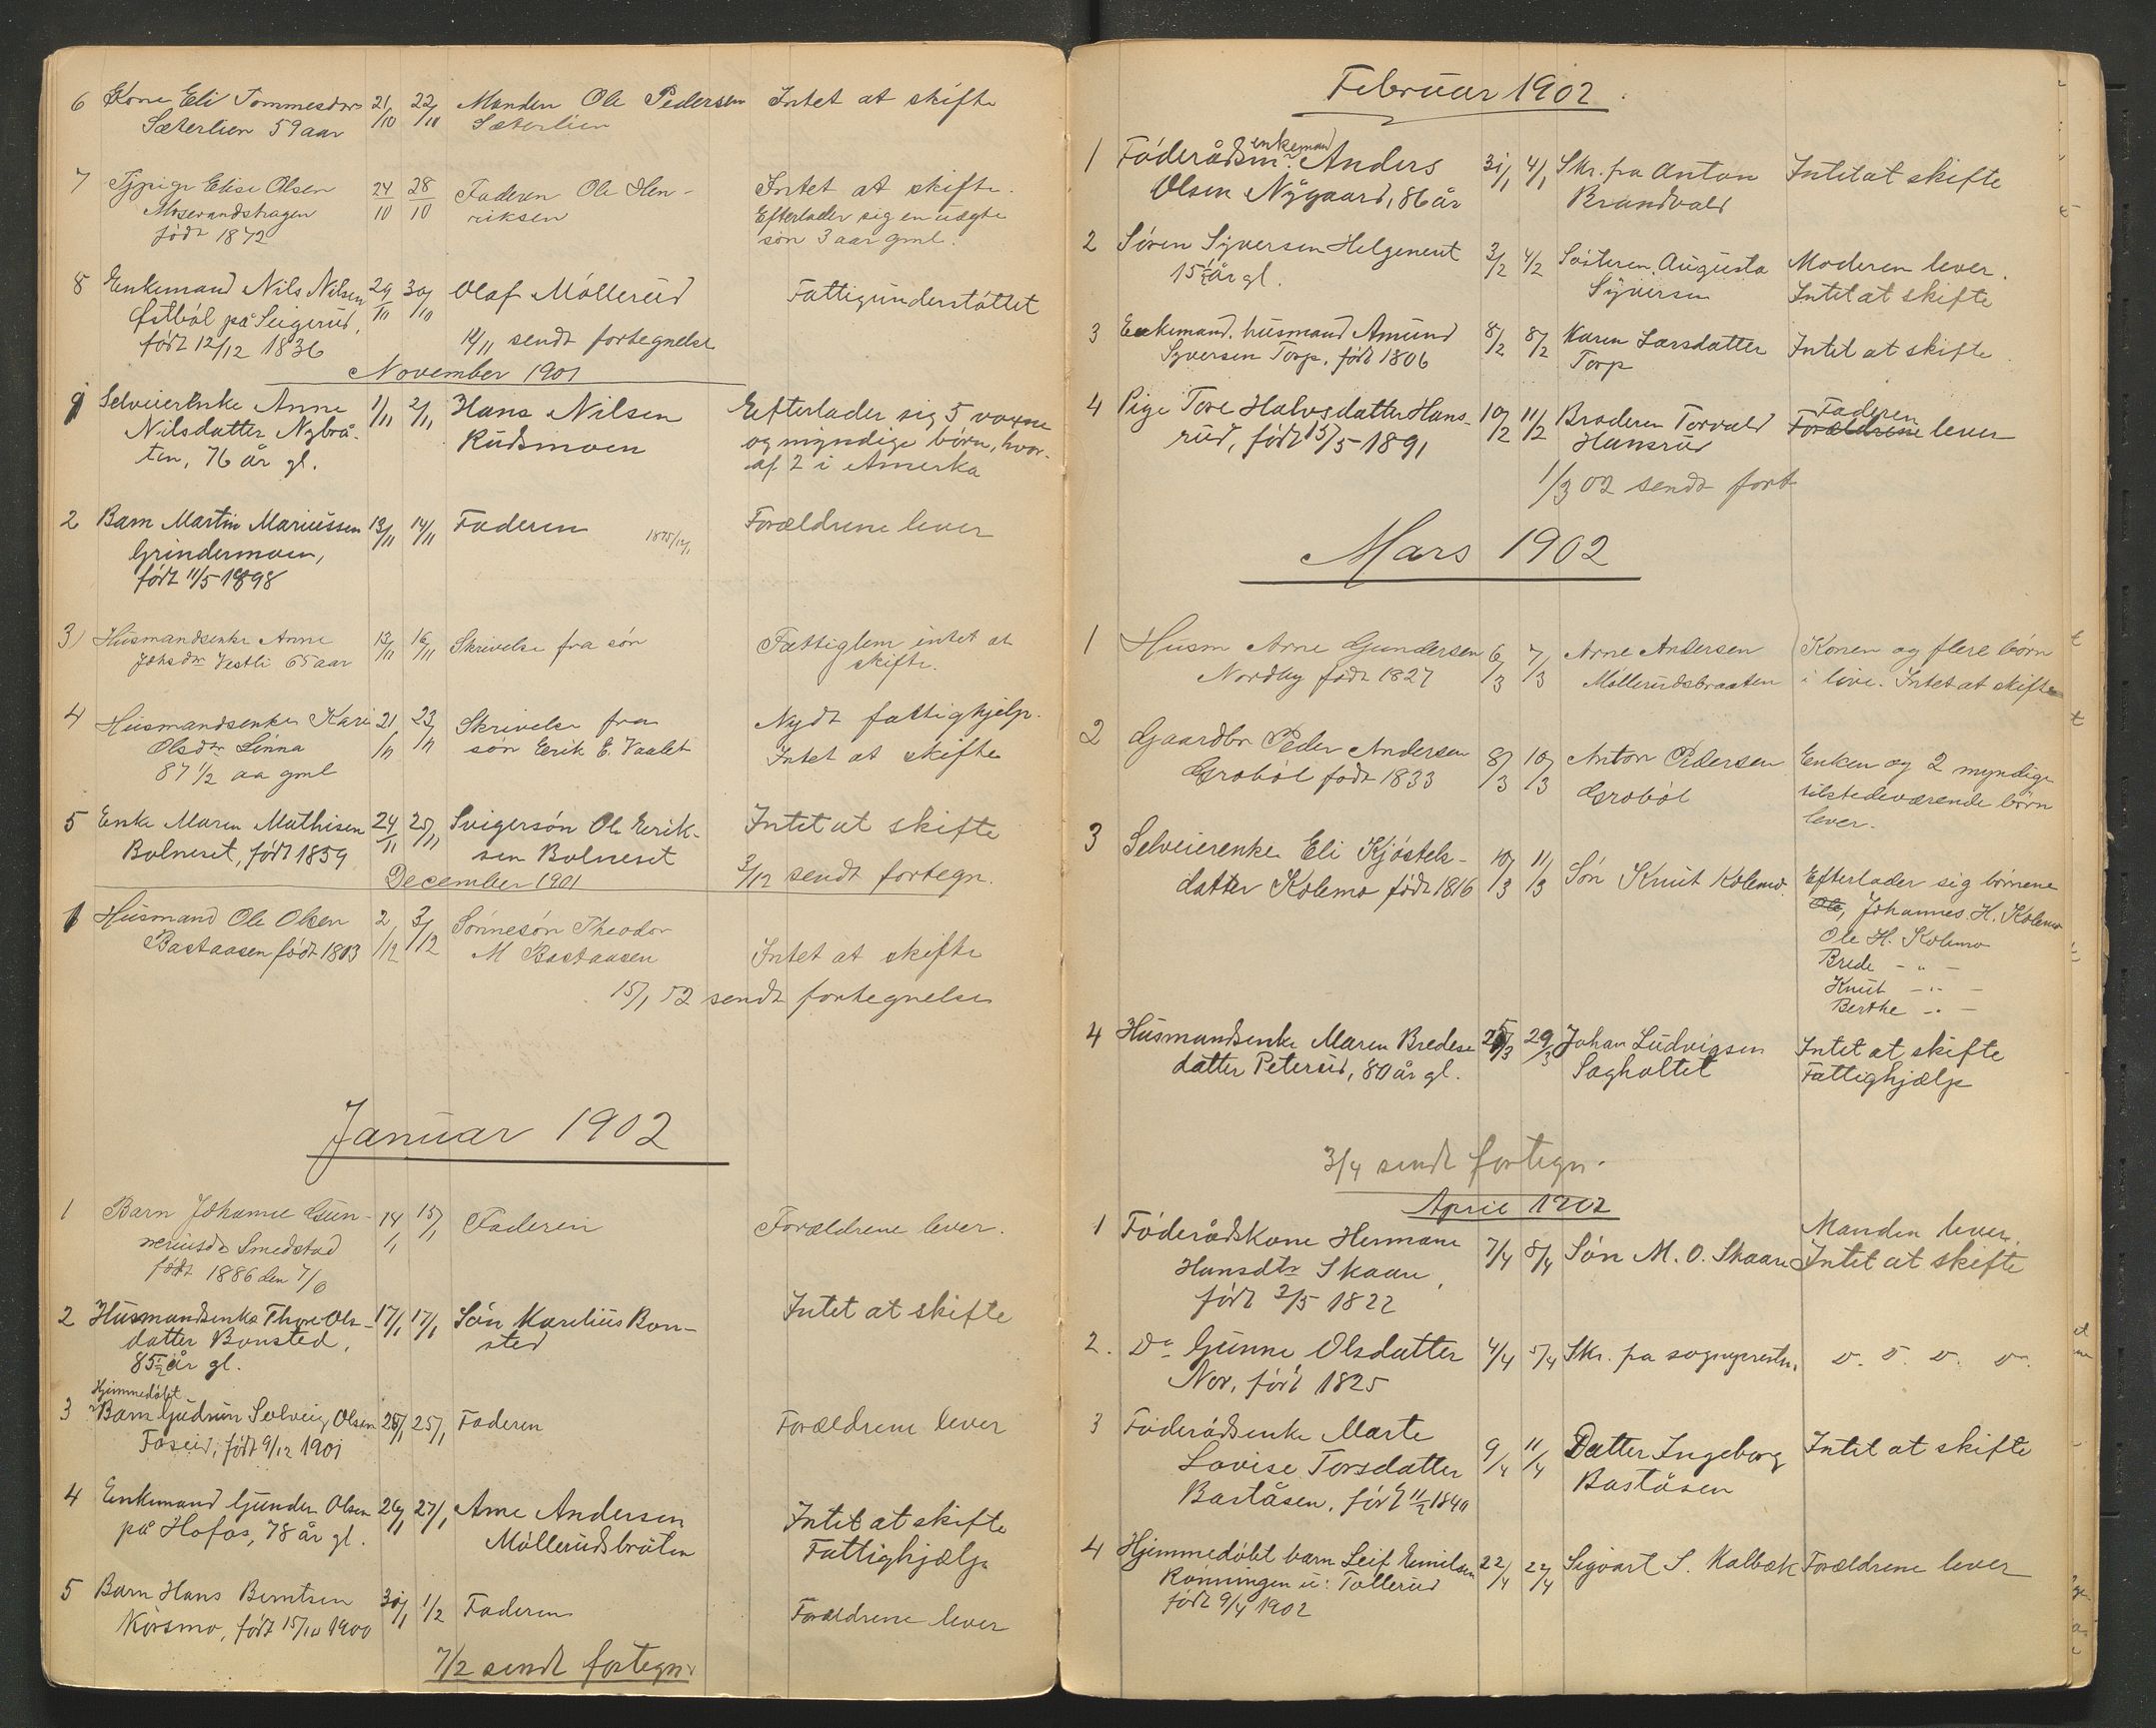 6 Kone Eli Tommesdatr 21/10 22/10 Manden Ole Pedersen Intet at skifte
Sæterlien 59 aar Sæterlien
7 Tjpige Elise Olsen 24/10 28/10 Faderen Ole Hen- Intet at skifte.
Moservandshagen riksen Efterlader sig en uægte
født 1872 søn 3 aar gml.
8 Enkemand Nils Nilsen 29/10 30/10 Olaf Møllerud Fattigunderstøttet
Østbøl på Seigerud,
født 12/12 1836 14/11 sendt fortegnelse
November 1901
1 Selveierenke Anne 1/11 2/11 Hans Nilsen Efterlader sig 5 voxne
Nilsdatter Nybrå- Rudsmoen og myndige børn, hvor-
ten, 76 år gl. af 2 i Amerka
2 Barn Martin Mariussen 13/11 14/11 Faderen Forældrene lever
Grindermoen,
født 11/5 1898
3) Husmandsenke Anne 13/11 16/11 Skrivelse fra søn Fattiglem intet at
Johsdr Vestli 65 aar skifte.
4 Husmandsenke Kari 21/11 23/11 Skrivelse fra Nydt fattighjelp.
Olsdtr Linna søn Erik E. Vaalet Intet at skifte
87 1/2 aa gml
5 Enke Maren Mathisen 24/11 25/11 Svigersøn Ole Erik- Intet at skifte
Bolneset, født 1859 sen Bolneset
December 1901 3/12 sendt fortegn.
1 Husmand Ole Olsen 2/12 3/12 Sønnesøn Theodor
Bastaasen født 1803 M Bastaasen Intet at skifte
15/1 02 sendt fortegnelse
Januar 1902
1 Barn Johanne Gun- 14/1 15/1 Faderen Forældrene lever.
neriusdr Smedstad
født 1886 den
2 Husmandsenke Thore Ols- 17/1 17/1 Søn Karelius Bon- Intet at skifte
datter Bonsted, sted
85 1/2 år gl.
Hjemmedøbt
3 Barn Gudrun Solveig Olsen 25/1 25/1 Faderen Forældrene lever
Foseid, født 9/12 1901
4 Enkemand Gunder Olsen 26/1 27/1 Arne Andersen Intet at skifte
på Hofos, 78 år gl. Møllerudsbråten Fattighjælp
5 Barn Hans Berntsen 30/1 1/2 Faderen Forældrene lever
Korsmo, født 15/10 1900
7/2 sendt fortegn.
Februar 1902.
enkemand
1 Føderådsm. Anders 31/1 4/1 Skr. fra Anton Intet at skifte
Olsen Nygaard, 86 år Brandvald
2 Søren Syversen Helgeneset 3/2 4/2 Søsteren Augusta Moderen lever.
15 1/2 år gl. Syversen Intet at skifte
3 Enkemand. husmand Amund 8/2 8/2 Karen Larsdatter Intet at skifte
Syversen Torp, født 1806 Torp
4 Pige Tore Halvsdatter Hans- 10/2 11/2 Broderen Torvald Faderen
rud, født 15/5 1891 Hansrud Forældrene lever
1/3 02 sendt fort
Mars 1902
1 Husm Arne Gundersen 6/3 7/3 Arne Andersen Konen og flere børn
Nordby født 1827 Møllerudsbraaten i live. Intet at skifte
2 Gaardbr Peder Andersen 8/3 10/3 Anton Pedersen Enken og 2 myndige
Grobøl født 1833 Grobøl tilstedeværende børn
lever.
3 Selveierenke Eli Kjøstels- 10/3 11/3 Søn Knut Kolemo Efterlader sig børnene
datter Kolemo født 1816 Ole, Johannes H. Kolemo
Ole H. Kolemo
Brede - " -
Knut - " -
Berthe - " -
4 Husmandsenke Maren Bredese 25/3 29/3 Johan Ludvigsen Intet at skifte
datter Peterud, 80 år gl. Sagholtet Fattighjælp
3/4 sendt fortegn.
April 1902
1 Føderådskone Hermane 7/4 8/4 Søn M. O. Skaare Manden lever.
Hansdtr Skaare, Intet at skifte
født 2/5 1822
2. Do Gunne Olsdatter 4/4 5/4 Skr. fra sogneprestn.
Nor, født 1825
3 Føderådsenke Marte 9/4 11/4 Datter Ingeborg Intet at skifte
Lovise Torsdatter Baståsen
Baståsen, født 11/2 1840
4 Hjemmedøbt barn Leif Emilsen 22/4 22/4 Sigvart S. Kalbæk Forældrene lever
Rønningen u: Tollerud
født 9/4 1902